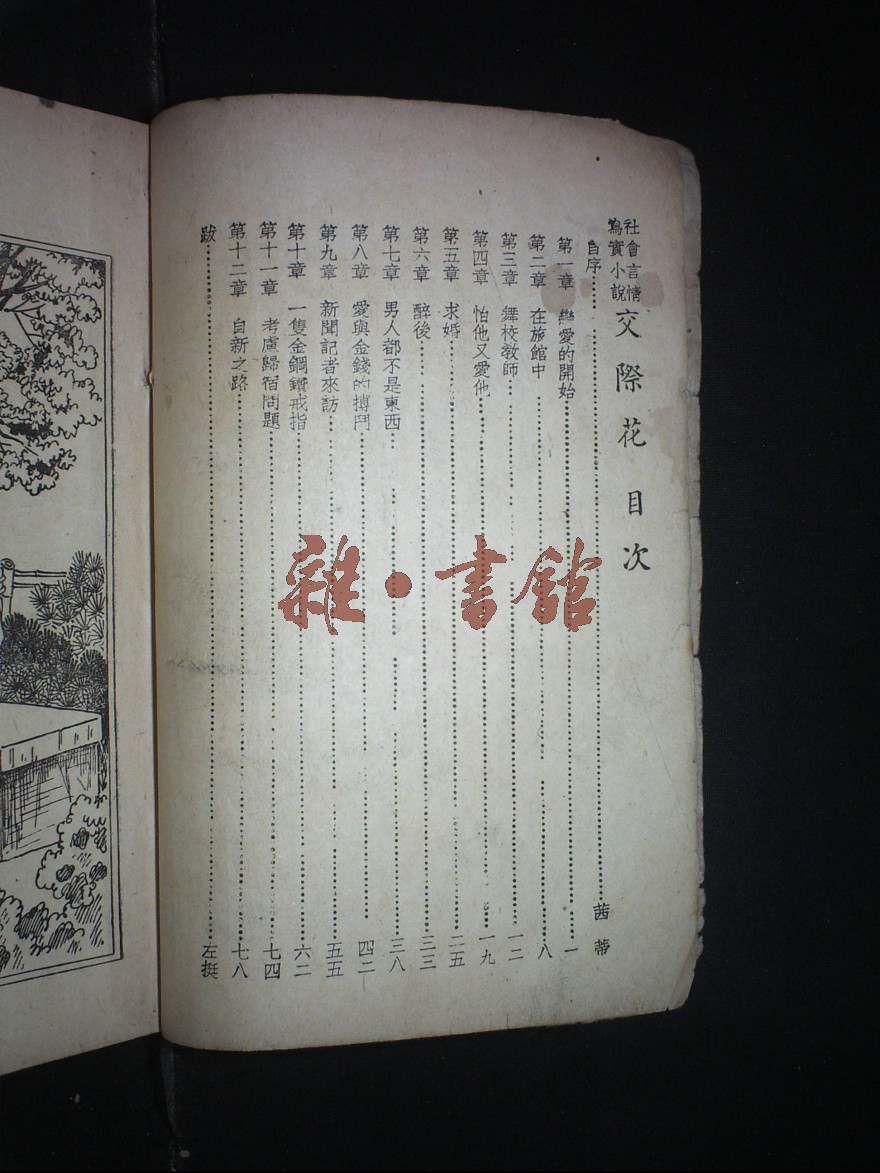 社會言情
寫實小說
交際花 目次
自序……茜蒂
第一章 戀愛的開始……一
第二章 在旅館中……八
第三章 舞校教師……一二
第四章 怕他又愛他……一九
第五章 求婚……二五
第六章 醉後……三三
第七章 男人都不是東西……三八
第八章 愛與金錢的搏鬥……四二
第九章 新聞記者來訪……五五
第十章 一隻金鋼鑽戒指……六二
第十一章 考慮歸宿問題……七四
第十二章 自新之路……七八
跋……左挺
雜·書館